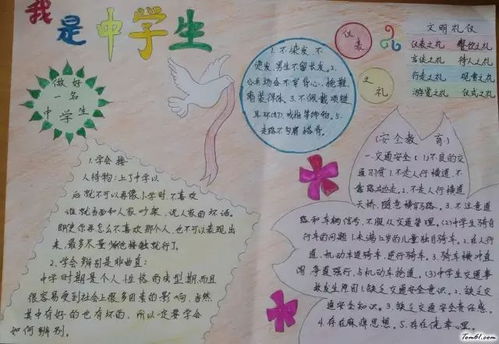 我是中学生
做好
一名
中学生
1.学会接
人待物:上了中学以
后就不可以再像小学时不喜欢
谁就当面和人家吵架,说人家的坏话。
即使你再怎么不喜欢那个人,也不可以表现出
来,最多尽量
接触就行了。
2.学会辨别是非曲直:
中学时期是个人性格的成型期,而且
很容易受到社会上很多因素的影响,当然
其中有好的也有坏的,所以一定要学会
如何辨别。
1.不染发、不
烫发,男生不留长发。2.
公共场合不穿背心、拖鞋、
3.不佩戴项链
仪表
之礼
文明礼仪
仪表之礼 餐饮之礼
言谈之礼 待人之礼
行走之礼 观赏之礼
游览之礼 仪式之礼
(安全教育)
一.交通安全:(1)不良的交
通习惯:1.不走人行横道、不
靠路边走。2.不走人行横道、
天桥,随意横穿马路。3.不注意道
路和车辆信号,不服从交通管理。(2)中学生骑自
行车的问题:1.未满12岁的儿童独自骑车。2.在人行
道、机动车道骑车,逆行骑车。3.骑车横冲直
闯、争道强行、与机动车抢道。(3)中学生交通事
故发生原因:1.缺乏交通安全意识。2.缺乏交
通安全知识。3.缺乏交通安全责任感。
4.存在麻痹思想。5.存在侥幸心理。
Tom61.com